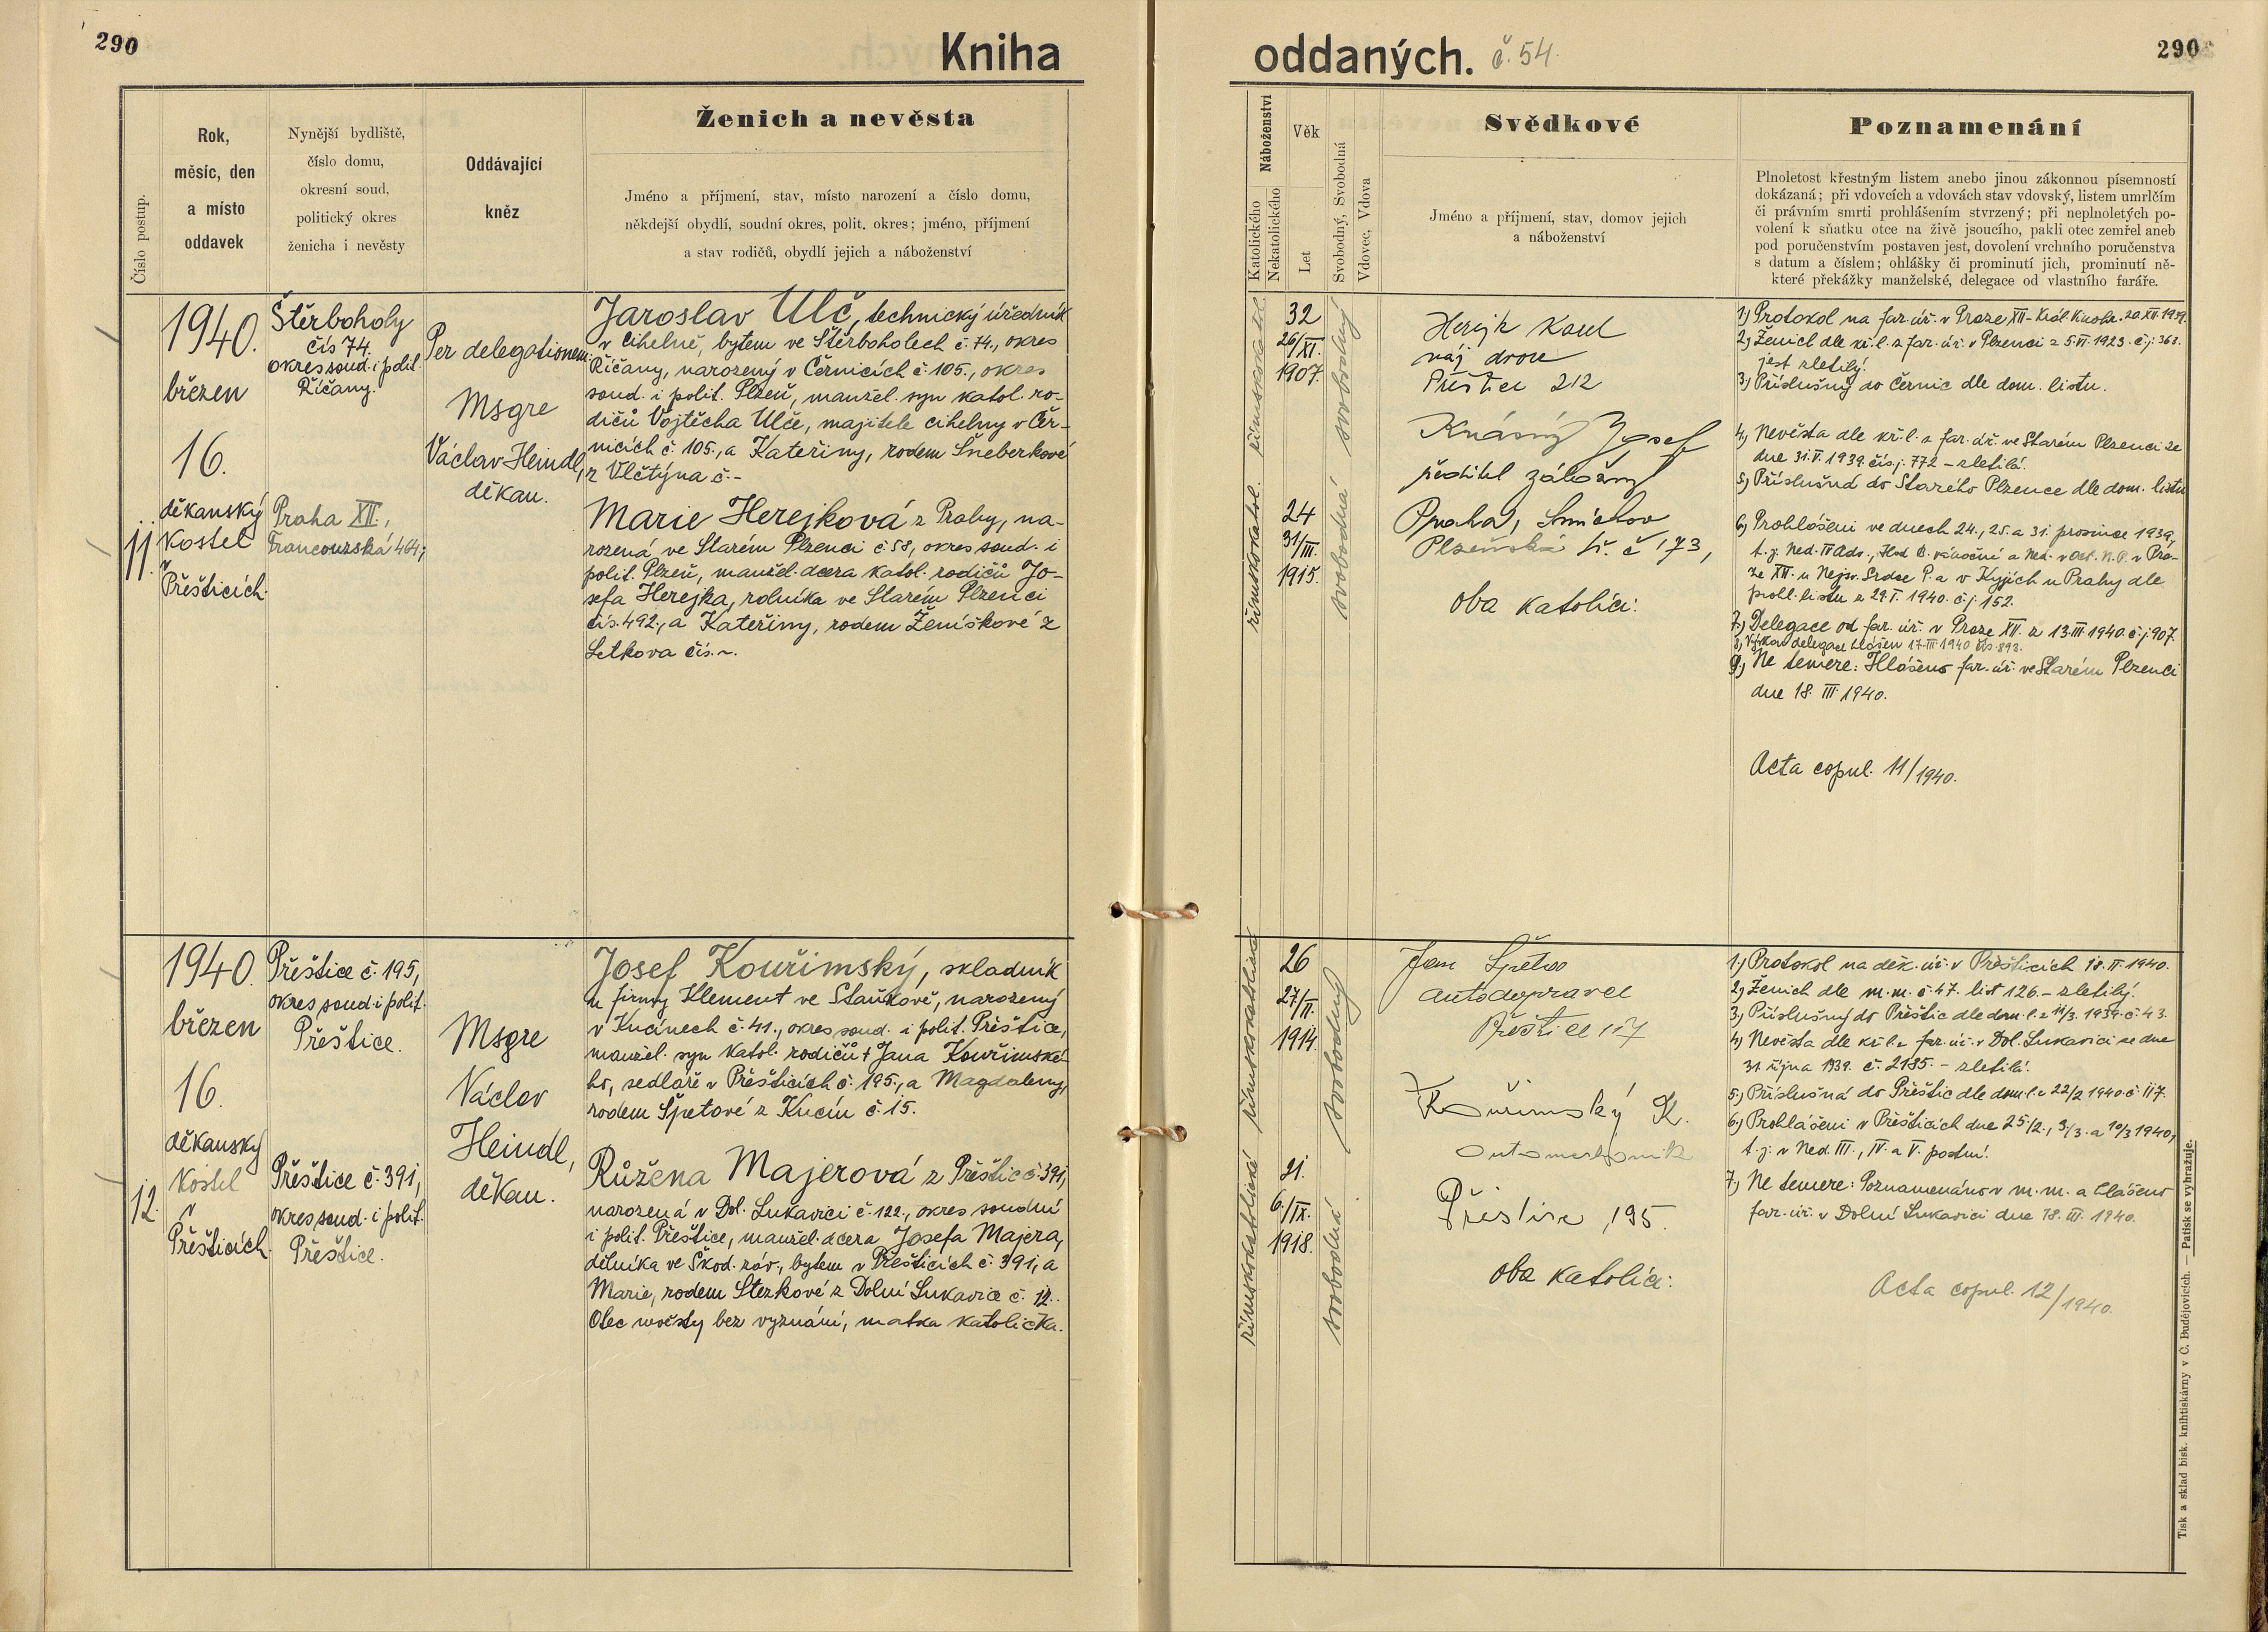 290
Kniha
oddaných.
č. 54.
290
Číslo postup.
Rok,
měsíc, den
a místo
oddavek
Nynější bydliště,
číslo domu,
okresní soud,
politický okres
ženicha i nevěsty
Oddávající
kněz
Ženich a nevěsta
Jméno a příjmení, stav, místo narození a číslo domu,
někdejší obydlí, soudní okres, polit. okres; jméno, příjmení
a stav rodičů, obydlí jejich a náboženství
Náboženství
Katolického
Nekatolického
Věk
Let
Svobodný, Svobodná
Vdovec, Vdova
Svědkové
Jméno a příjmení, stav, domov jejich
a náboženství
Poznamenání
Plnoletost křestným listem anebo jinou zákonnou písemností
dokázaná; při vdovcích a vdovách stav vdovský, listem umrlčím
či právním smrti prohlášením stvrzený; při neplnoletých po-
volení k sňatku otce na živě jsoucího, pakli otec zemřel aneb
pod poručenstvím postaven jest, dovolení vrchního poručenstva
s datum a číslem; ohlášky či prominutí jich, prominutí ně-
které překážky manželské, delegace od vlastního faráře.
11.
1940.
březen
16.
děkanský
kostel
v
Přešticích.
Štěrboholy
čís 74.
okres soud. i polit.
Říčany.
Praha XII.,
Francouzská 464;
Per delegationem:
Msgre
Václav Heindl,
děkan.
Jaroslav Ulč, technický úředník
v cihelně, bytem ve Štěrboholech č. 74., okres
Říčany, narozený v Černicích č. 105., okres
soud. i polit. Plzeň, manžel. syn katol. ro-
dičů Vojtěcha Ulče, majitele cihelny v Čer-
nicích č. 105., a Kateřiny, rodem Šneberkové
z Vlčtýna č.-
Marie Herejková z Prahy, na-
rozená ve Starém Plzenci č 58, okres soud. i
polit. Plzeň, manžel. dcera katol. rodičů Jo-
sefa Herejka, rolníka ve Starém Plzenci
čís. 492., a Kateřiny, rodem Ženíškové z
Letkova čís. ~.
římskokatol.
32
26/XI.
1907.
svobodný
římskokatol.
24
31/III.
1915.
svobodná
Herejk Karel
náj. dvora
Přeštice 212
Krásný Josef
ředitel záložny
Praha, Smíchov
Plzeňská tř. č 173,
oba katolíci:
1) Protokol na far. úř. v Praze XII - Král. Vinohr. 20.XII.1939.
2) Ženich dle kř. l. z far. úř. v Plzenci z 5.VI.1923. č. j. 363.
jest zletilý.
3) Příslušný do Černic dle dom. listu.
4) Nevěsta dle kř. l. z far. úř. ve Starém Plzenci ze
dne 31.V.1939. čís. j. 772 - zletilá.
5) Příslušná do Starého Plzence dle dom. listu
6) Prohlášeni ve dnech 24., 25. a 31. prosince 1939,
t. j. Ned. IV Adv., Hod B. vánoční a Ned. v Okt. N. P. v Pra-
ze XII. u Nejsv. Srdce P. a v Kyjích u Prahy dle
prohl. listu z 29.I.1940. č. j. 152.
7) Delegace od far. úř. v Praze XII. z 13.III.1940. č. j. 907.
8) Výkon delegace hlášen 17.III.1940 čís. 893.
9) Ne temere: Hlášeno far. úř. ve Starém Plzenci
dne 18. III. 1940.
Acta copul. 11/1940.
12.
1940.
březen
16.
děkanský
kostel
v
Přešticích.
Přeštice č. 195,
okres soud. i polit.
Přeštice.
Přeštice č. 391,
okres soud. i polit.
Přeštice.
Msgre
Václav
Heindl,
děkan.
Josef Kouřimský, skladník
u firmy Klement ve Staňkově, narozený
v Kucinech č. 41., okres soud. i polit. Přeštice,
manžel. syn katol. rodičů † Jana Kouřimské-
ho, sedláře v Přešticích č. 195., a Magdaleny,
rodem Špetové z Kucín č. 15.
Růžena Majerová z Přeštic č. 391,
narozená v Dol. Lukavici č. 122., okres soudní
i polit. Přeštice, manžel. dcera Josefa Majera,
dělníka ve Škod. záv., bytem v Přešticích č. 391, a
Marie, rodem Sterkové z Dolní Lukavice č. 12.
Otec nevěsty bez vyznání, matka katolička.
římskokatolické
26
27/II.
1914.
svobodný
římskokatolická
21.
6./IX.
1918.
svobodná
Jan Špeta
autodopravce
Přeštice 117
Kouřimský K.
automechanik
Přeštice, 195.
oba katolíci:
1.) Protokol na děk. úř. v Přešticích 18. II. 1940.
2.) Ženich dle m. m. č. 47. list 126. - zletilý.
3.) Příslušný do Přeštic dle dom. l. z 14/3. 1939. č. 43.
4.) Nevěsta dle kř. l. z far. úř. v Dol. Lukavici ze dne
31. října 1939. č. 2185. - zletilá.
5.) Příslušná do Přeštic dle dom. l. z 22/2 1940. č. 117.
6.) Prohlášeni v Přešticích dne 25./2., 3/3. a 10/3 1940,
t. j. v Ned. III., IV. a V. postní.
7.) Ne temere: Poznamenáno v m. m. a hlášeno
far. úř. v Dolní Lukavici dne 18. III. 1940.
Acta copul. 12/1940.
Tisk a sklad bisk. knihtiskárny v Č. Budějovicích. — Patisk se vyhražuje.